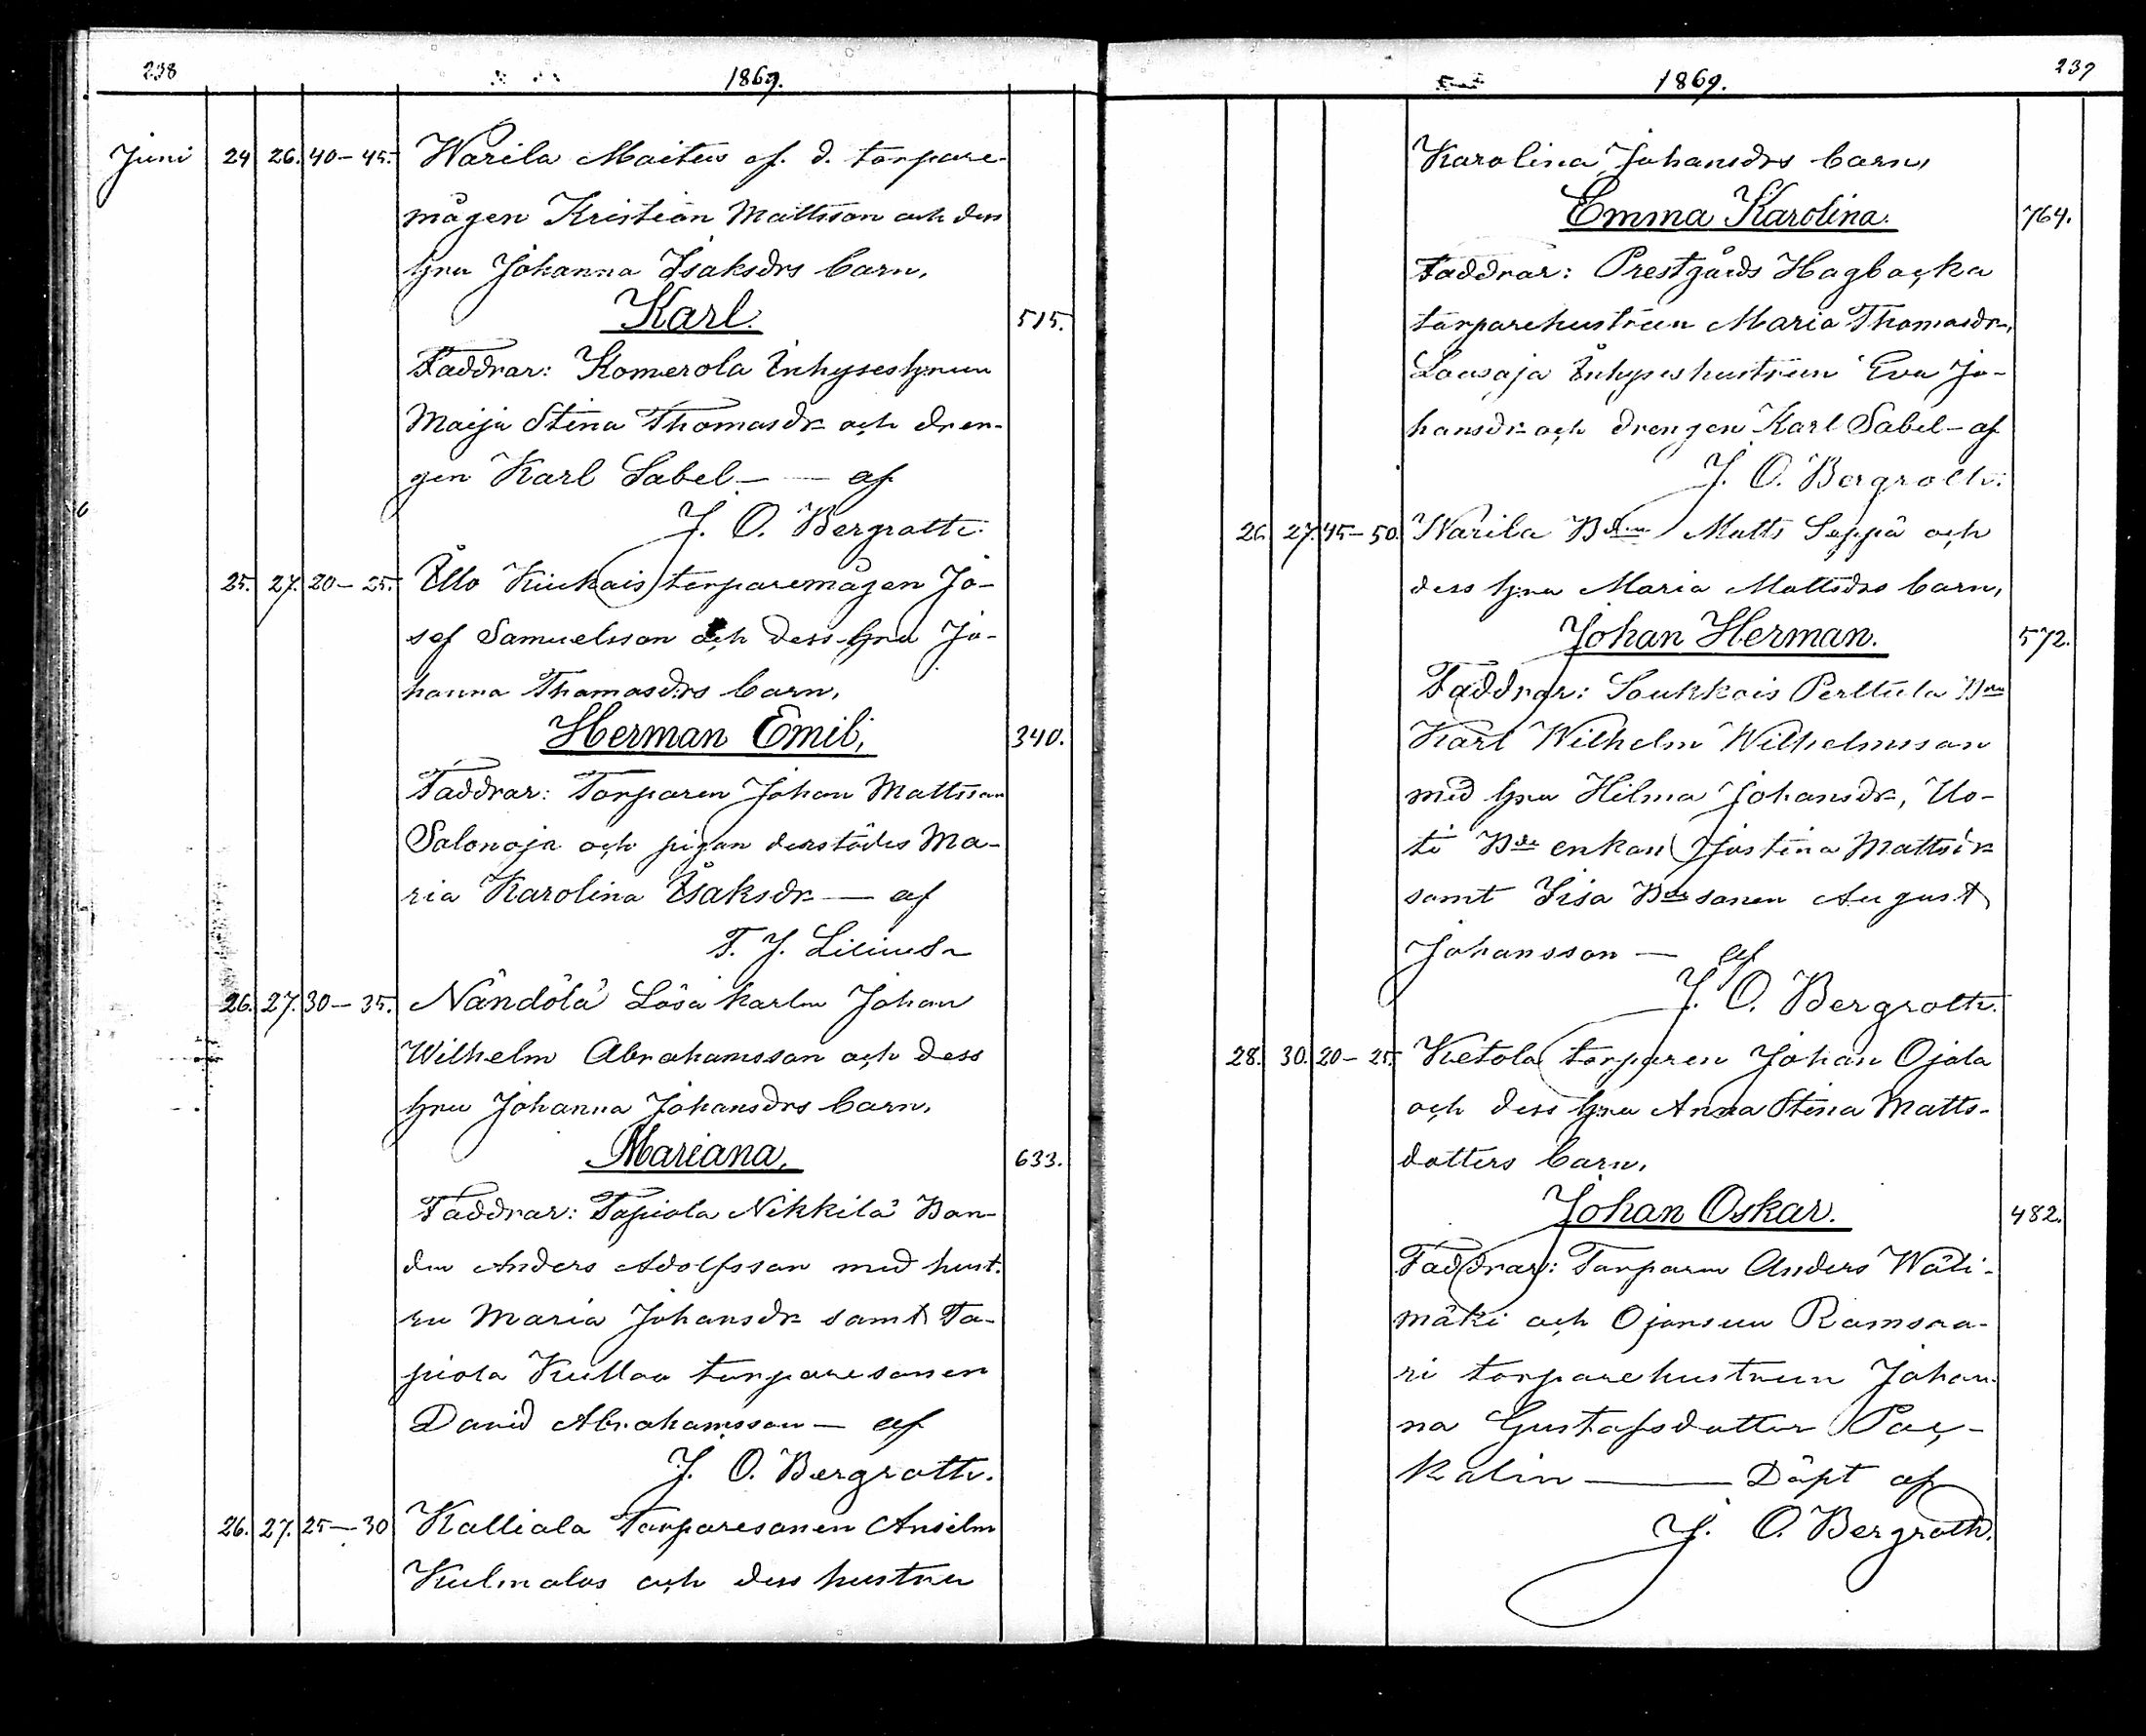 238
1869.
Juni 24 26. 40–45. Warila Maitus af. d. torpare-
mågen Kristian Mattsson och dess
hru Johanna Isaksdrs barn,
Karl. 515.
Faddrar: Komerola Inhyseshrun
Maija Stina Thomasdr och dren-
gen Karl Sabel — af
J. O. Bergroth.
25. 27. 20–25. Illo Kiukais torparemågen Jo-
sef Samuelsson och dess hru Jo-
hanna Thomasdrs barn,
Herman Emil, 340.
Faddrar: Torparen Johan Mattsson
Salonoja och pigan derstädes Ma-
ria Karolina Isaksdr — af
F. J. Lilius
26. 27. 30–35. Nändölä Lösa karln Johan
Wilhelm Abrahamsson och dess
hru Johanna Johansdrs barn,
Mariana, 633.
Faddrar: Tapiola Nikkilä Bon-
den Anders Adolfsson med hust-
ru Maria Johansdr samt Ta-
piola Kullaa torparesonen
David Abrahamsson — af
J. O. Bergroth.
26. 27. 25–30 Kalliala Torparesonen Anselm
Kulmalas och dess hustru
1869.
239
Karolina Johansdrs barn,
Emma Karolina. 764.
Faddrar: Prestgårds Hagbacka
torparehustrun Maria Thomasdr,
Inhyseshustrun Eva Jo-
hansdr och drengen Karl Sabel – af
J. O. Bergroth.
26. 27. 45–50. Warila Bdn Matts Seppä och
dess hru Maria Mattsdrs barn,
Johan Herman. 572.
Faddrar: Soukkais Perttula Bdn
Karl Wilhelm Wilhelmsson
med hru Hilma Johansdr, Uo-
ti Bde enkan Justina Mattsdr
samt Sisa Bde sonen August
Johansson — af
J. O. Bergroth.
28. 30. 20–25. Ketola torparen Johan Ojala
och dess hru Anna Stina Matts-
dotters barn,
Johan Oskar. 482.
Faddrar: Torparen Anders Wäli-
mäki och Ojansuu Ramsaa-
ri torparehustrun Johan-
na Gustafsdotter Pac-
kalin — Döpt af
J. O. Bergroth.